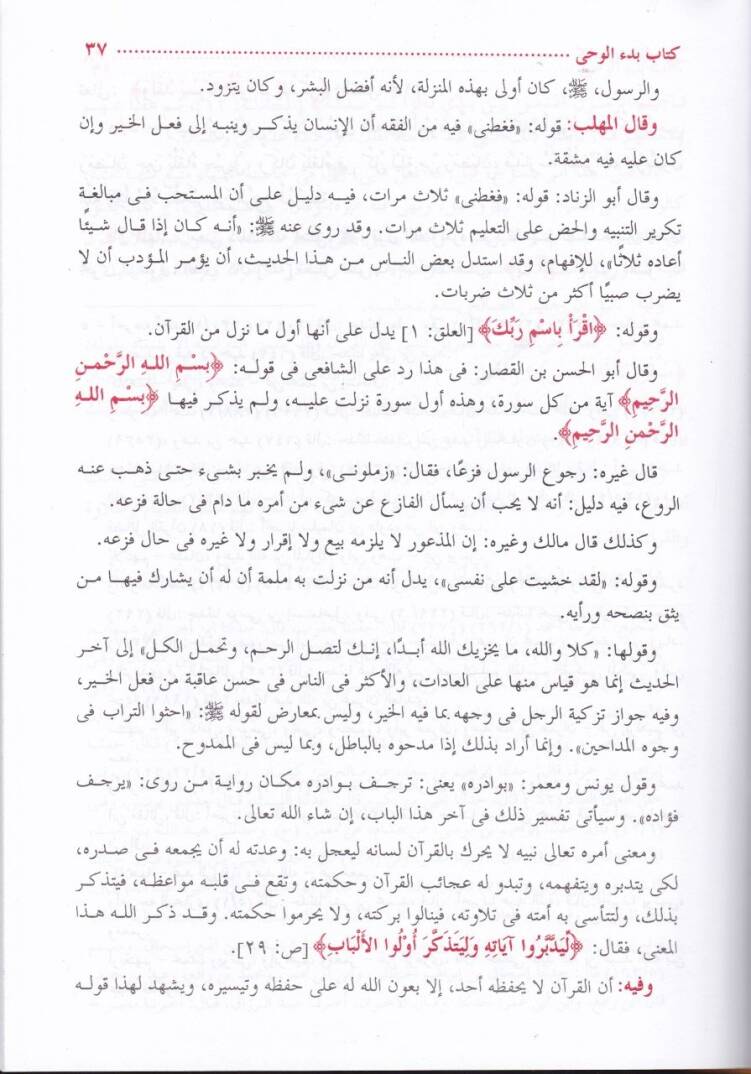 كتاب بدء الوحى ........................................................... ٣٧
والرسول، ﷺ، كان أولى بهذه المنزلة، لأنه أفضل البشر، وكان يتزود.
وقال المهلب: قوله: «فغطنى» فيه من الفقه أن الإنسان يذكر وينبه إلى فعل الخير وإن
كان عليه فيه مشقة.
وقال أبو الزناد: قوله: «فغطنى» ثلاث مرات، فيه دليل على أن المستحب فى مبالغة
تكرير التنبيه والحض على التعليم ثلاث مرات. وقد روى عنه ﷺ: «أنه كان إذا قال شيئًا
أعاده ثلاثًا»، للإفهام، وقد استدل بعض الناس من هذا الحديث، أن يؤمر المؤدب أن لا
يضرب صبيًا أكثر من ثلاث ضربات.
وقوله: ﴿اقْرَأْ بِاسْمِ رَبِّكَ﴾ [العلق: ١] يدل على أنها أول ما نزل من القرآن.
وقال أبو الحسن بن القصار: فى هذا رد على الشافعى فى قوله: ﴿بِسْمِ اللهِ الرَّحْمنِ
الرَّحِيمِ﴾ آية من كل سورة، وهذه أول سورة نزلت عليه، ولم يذكر فيها ﴿بِسْمِ اللهِ
الرَّحْمنِ الرَّحِيمِ﴾.
قال غيره: رجوع الرسول فزعًا، فقال: «زملونى»، ولم يخبر بشىء حتى ذهب عنه
الروع، فيه دليل: أنه لا يحب أن يسأل الفازع عن شىء من أمره ما دام فى حالة فزعه.
وكذلك قال مالك وغيره: إن المذعور لا يلزمه بيع ولا إقرار ولا غيره فى حال فزعه.
وقوله: «لقد خشيت على نفسى»، يدل أنه من نزلت به ملمة أن له أن يشارك فيها من
يثق بنصحه ورأيه.
وقولها: «كلا والله، ما يخزيك الله أبدًا، إنك لتصل الرحم، وتحمل الكل» إلى آخر
الحديث إنما هو قياس منها على العادات، والأكثر فى الناس فى حسن عاقبة من فعل الخير،
وفيه جواز تزكية الرجل فى وجهه بما فيه الخير، وليس بمعارض لقوله ﷺ: «احثوا التراب فى
وجوه المداحين». وإنما أراد بذلك إذا مدحوه بالباطل، وبما ليس فى الممدوح.
وقول يونس ومعمر: «بوادره» يعنى: ترجف بوادره مكان رواية من روى: «يرجف
فؤاده». وسيأتى تفسير ذلك فى آخر هذا الباب، إن شاء الله تعالى.
ومعنى أمره تعالى نبيه لا يحرك بالقرآن لسانه ليعجل به: وعدته له أن يجمعه فى صدره،
لكى يتدبره ويتفهمه، وتبدو له عجائب القرآن وحكمته، وتقع فى قلبه مواعظه، فيتذكر
بذلك، ولتتأسى به أمته فى تلاوته، فينالوا بركته، ولا يحرموا حكمته. وقد ذكر الله هذا
المعنى، فقال: ﴿لِيَدَّبَّرُوا آيَاتِهِ وَلِيَتَذَكَّرَ أُوْلُوا الأَلْبَابِ﴾ [ص: ٢٩].
وفيه: أن القرآن لا يحفظه أحد، إلا بعون الله له على حفظه وتيسيره، ويشهد لهذا قوله